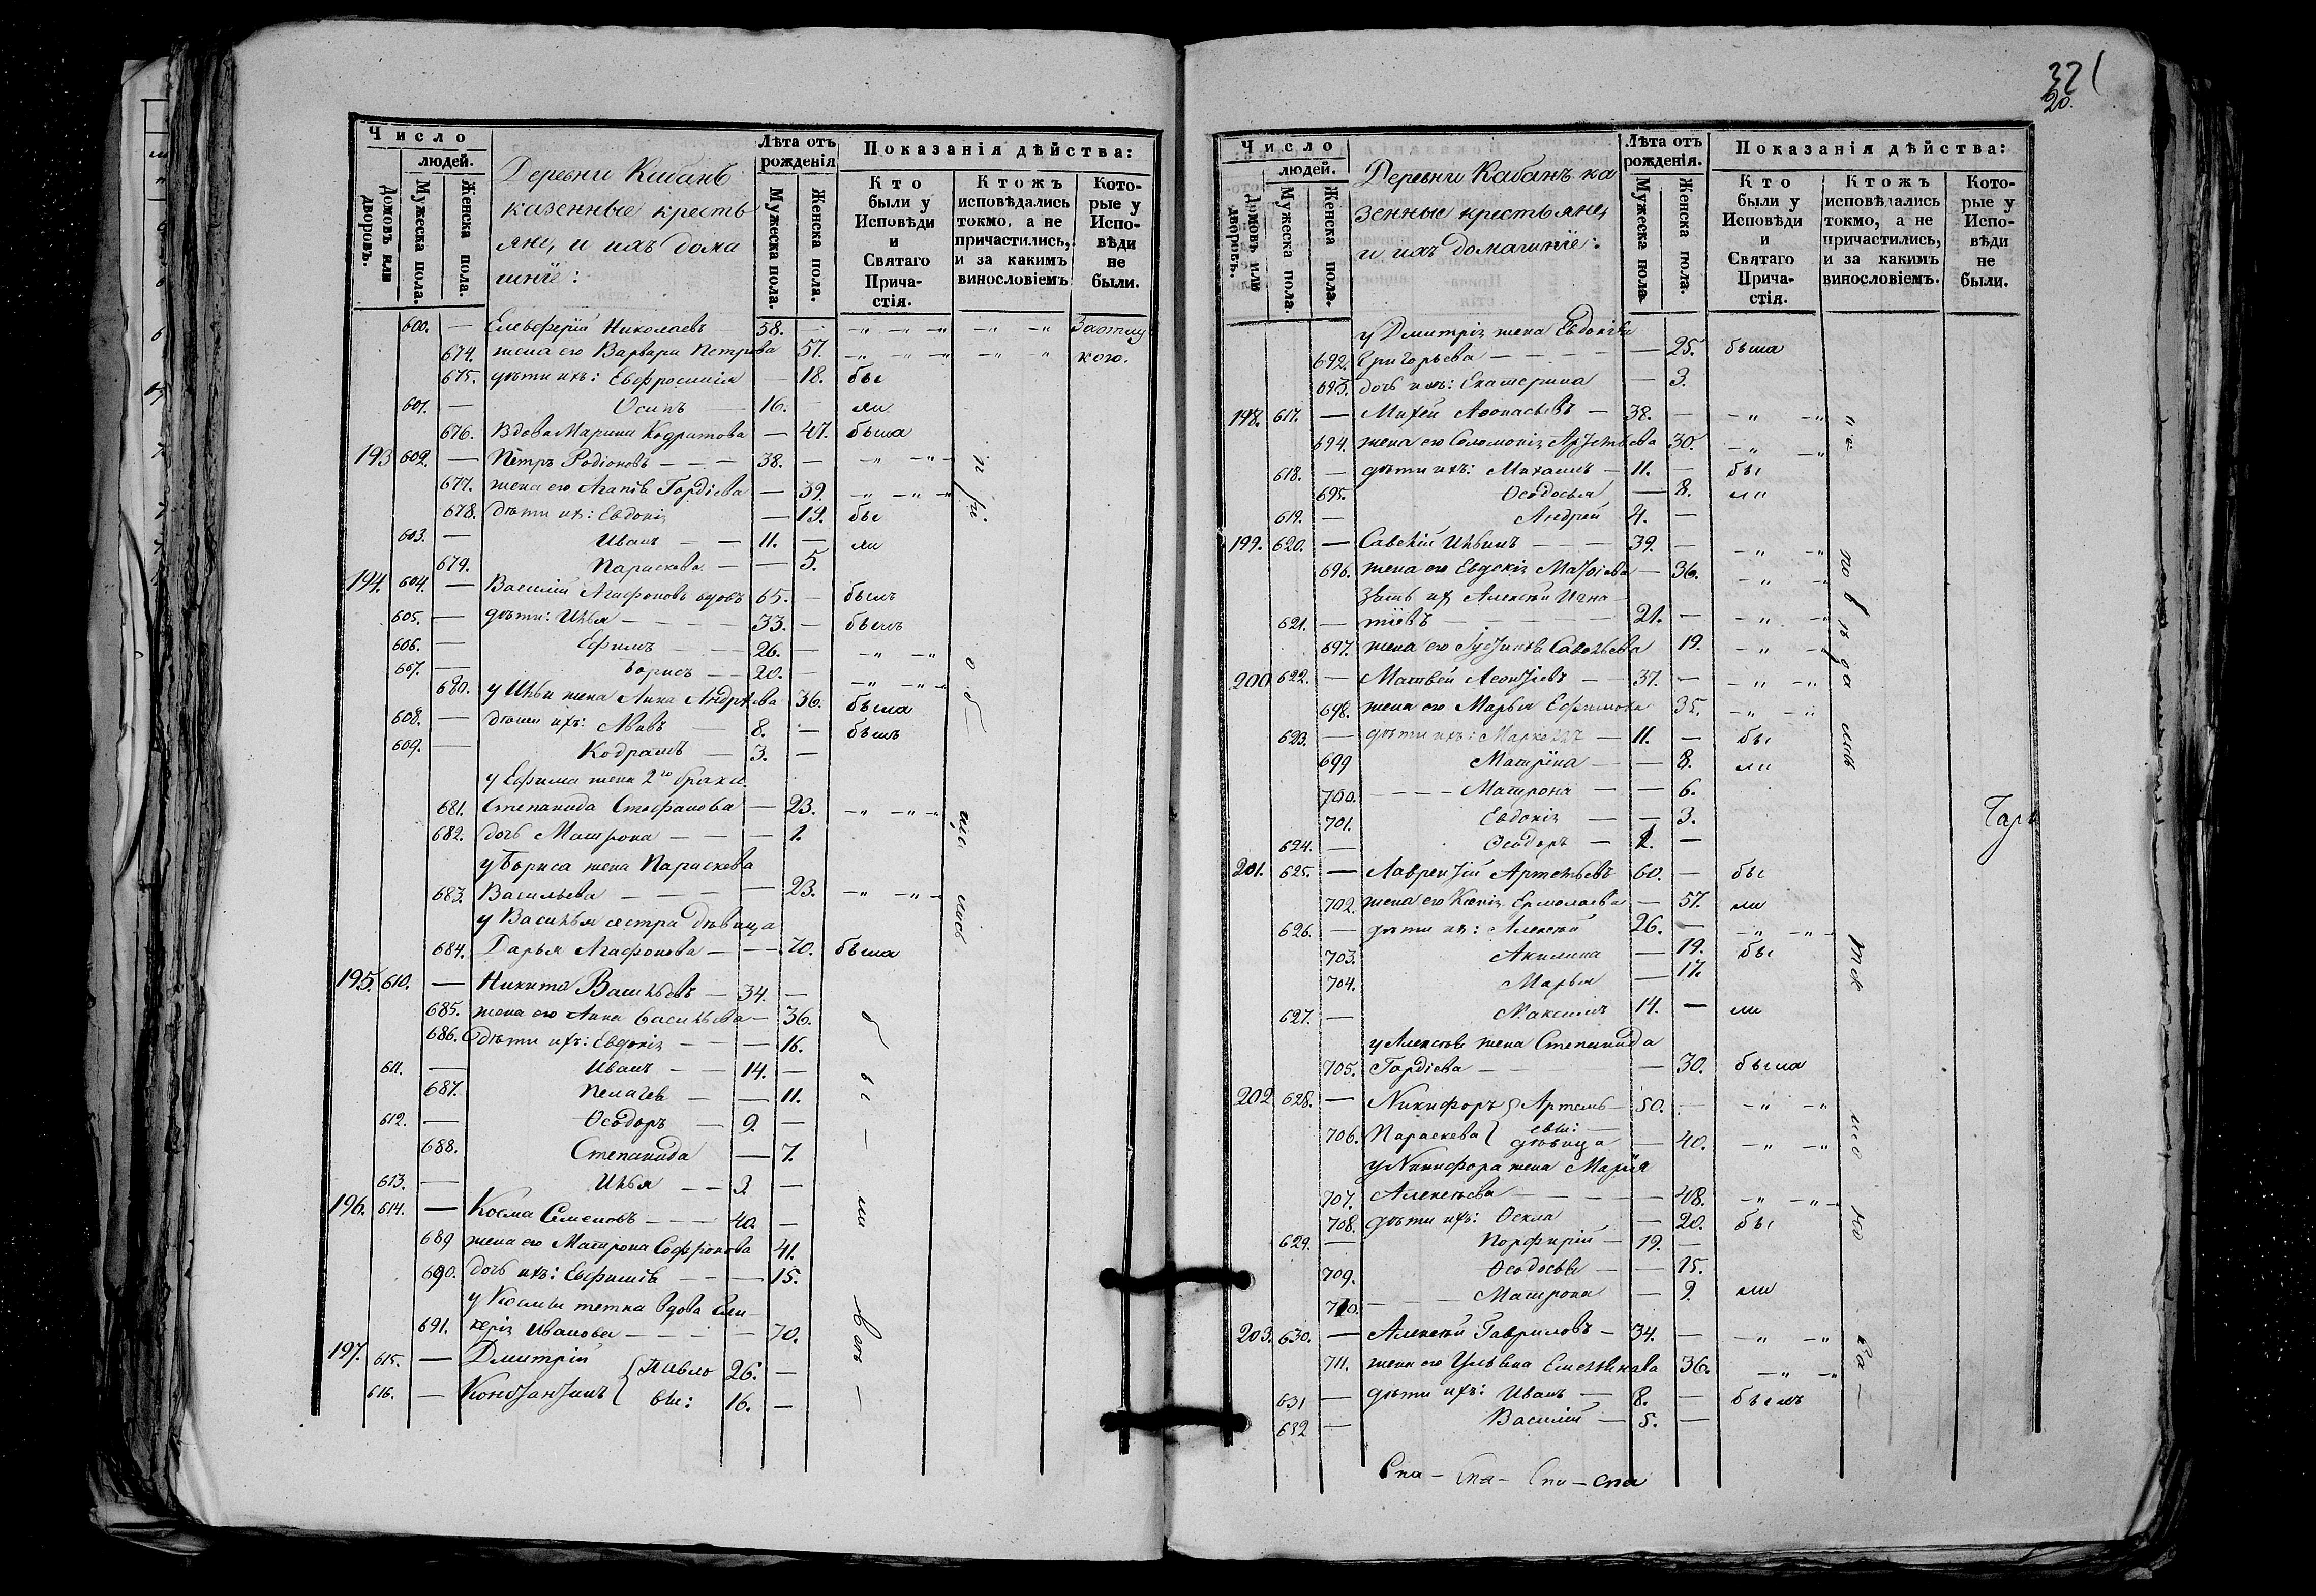 Число
людей.
Домовъ или дворовъ.
Мужеска пола.
Женска пола.
Деревни Кабанъ
казенные кресть
яне, и ихъ дома
шнїе:
Лѣта отъ рожденія
Мужеска пола.
Женска пола.
Показанія дѣйства:
Кто были у Исповѣди и Святаго Прича-стія.
Ктожъ исповѣдались токмо, а не причастились, и за какимъ винословіемъ
Кото-рые у Испо-вѣди не были.
600. — Елевферїй Николаевъ 58. —
674. жена его Варвара Петрова 57. кого.
675. дѣти ихъ: Евфросинїя — 18. бы
601. — Осипъ 16. — ли
676. Вдова Марина Кодратова — 47. была
193 602. — Петръ Родіоновъ — 38. —
677. жена его Агапїя Гордїева — 39.
678. дѣти их: Евдокія — 19. бы
603. — Иванъ — 11. — ли
679. Параскева — 5.
194. 604. — Василїй Агафоновъ вдовъ 65. — былъ
605. — дѣти: Илья — 33. — былъ
606. — Ефимъ — 26. —
607. — Борисъ — 20. —
680. у Ильи жена Анна Андрѣева 36. была
608. — дѣти ихъ: Львъ 8. — былъ
609. — Кодратъ — 3. —
у Ефима жена 2го брака
681. Степанида Стефанова — 23.
682. дочь Матрона — 1.
у Бориса жена Параскева
683. Васильева — 23.
у Василья сестра дѣвица
684. Дарья Агафонова — 70. была
195. 610. — Никита Васильевъ — 34. —
685. жена его Анна Васильева — 36.
686. дѣти ихъ: Евдокія — 16.
611. — Иванъ — 14. —
687. Пелагея — 11.
612. — Ѳеодоръ — 9. —
688. Степанида — 7.
613. — Илья — 3. —
196. 614. — Косма Семеновъ — 40. —
689 жена его Матрона Софронова 41.
690. дочь ихъ: Евфимїя — 15.
у Космы тетка вдова Гли
691. керія Иванова — 70.
197. 615. — Дмитрій { Павло 26. —
616. — Константинъ { вы: 16. —
321
20.
Число
людей.
Домовъ или дворовъ.
Мужеска пола
Женска пола.
Деревни Кабанъ ка
зенные крестьяне,
и ихъ домашнїе:
Лѣта отъ рожденія.
Мужеска пола
Женска пола.
Показанія дѣйства:
Кто были у Исповѣди и Святаго Прича-стія.
Ктожъ исповѣдались токмо, а не причастились, и за какимъ винословіемъ.
Кото-рые у Испо-вѣди не были.
у Дмитрія жена Евдокїя
692. Григорьева — 25. была
693. дочь ихъ: Екатерина — 3.
198. 617. — Михей Аѳонасьевъ — 38. —
694. жена его Соломонія Артемьева 30.
618. — дѣти ихъ: Михаилъ — 11. — бы
695. Ѳеодосья — 8. ли
619. — Андрей 4. —
199. 620. — Савелїй Ильинъ — 39. —
696. жена его Евдокія Матвїева — 36.
Зять их Алексѣй Игна
621. — тїевъ — 21. —
697. жена его Савельева 19.
200. 622. — Матвей Леонтїевъ — 37. —
698. жена его Марья Ефимова 35.
623. — дѣти ихъ: Маркеллъ — 11. — бы
699 Матрїна — 8. ли
700. Матрона — 6.
701. Евдокія — 3.
624. — Ѳеодоръ — 1. —
201. 625. — Лаврентїй Артемьевъ 60. — бы
702. жена его Ксенія Ермолаева — 57. ли
626. — дѣти их: Алексѣй 26. —
703. Акилина — 19. бы
704. Марья — 17.
627. — Максимъ 14. — ли
у Алексѣя жена Степанида
705. Гордїева — 30. была
202 628. — Никифоръ { Артемь 50. —
706. Параскева { евы: дѣвица — 40.
у Никифора жена Марїя
707. Алексѣева — 48.
708. дѣти ихъ: Ѳекла — 20. бы
629. — Порфирїй — 19. —
709. Ѳеодосья — 15.
710. Матрона — 9. ли
203. 630. — Алексѣй Гавриловъ — 34. —
711. жена его Ульяна Емельянова 36.
631 — дѣти ихъ: Иванъ — 8. — былъ
632 — Василїй — 5. —
Спа — Спа — Спа — Спа